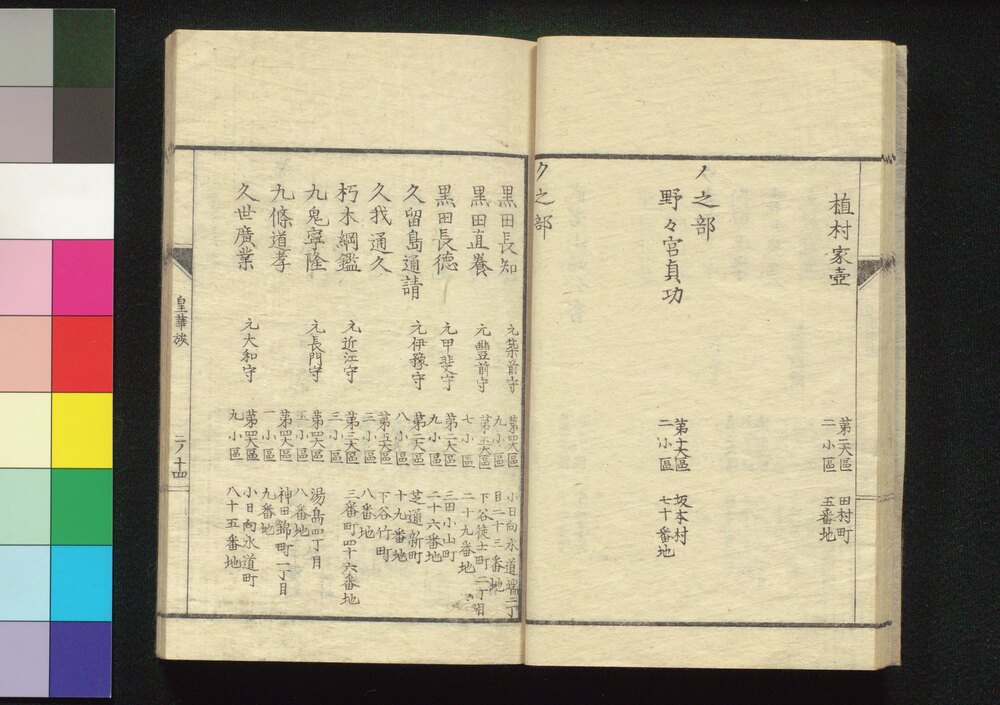 植村家壺 第二大區二小區 田村町五番地
ノ之部
野々宮貞功 第十大區二小區 坂本村七十番地
ク之部
黒田長知 元筑前守 第四大區九小區 小日向水道端二丁目二十三番地
黒田直養 元豐前守 第五大區七小區 下谷徒士町二丁目二十九番地
黒田長德 元甲斐守 第二大區九小區 三田小山町二十六番地
久留島通靖 元伊豫守 第二大區八小區 芝通新町十九番地
久我通久 第五大區二小區 下谷竹町八番地
朽木綱鑑 元近江守 第三大區三小區 三番町四十六番地
九鬼寧隆 元長門守 第四大區五小區 湯島四丁目八番地
九條道孝 第四大區一小區 神田錦町一丁目九番地
久世廣業 元大和守 第四大區九小區 小日向水道町八十五番地
皇華族
二ノ十四